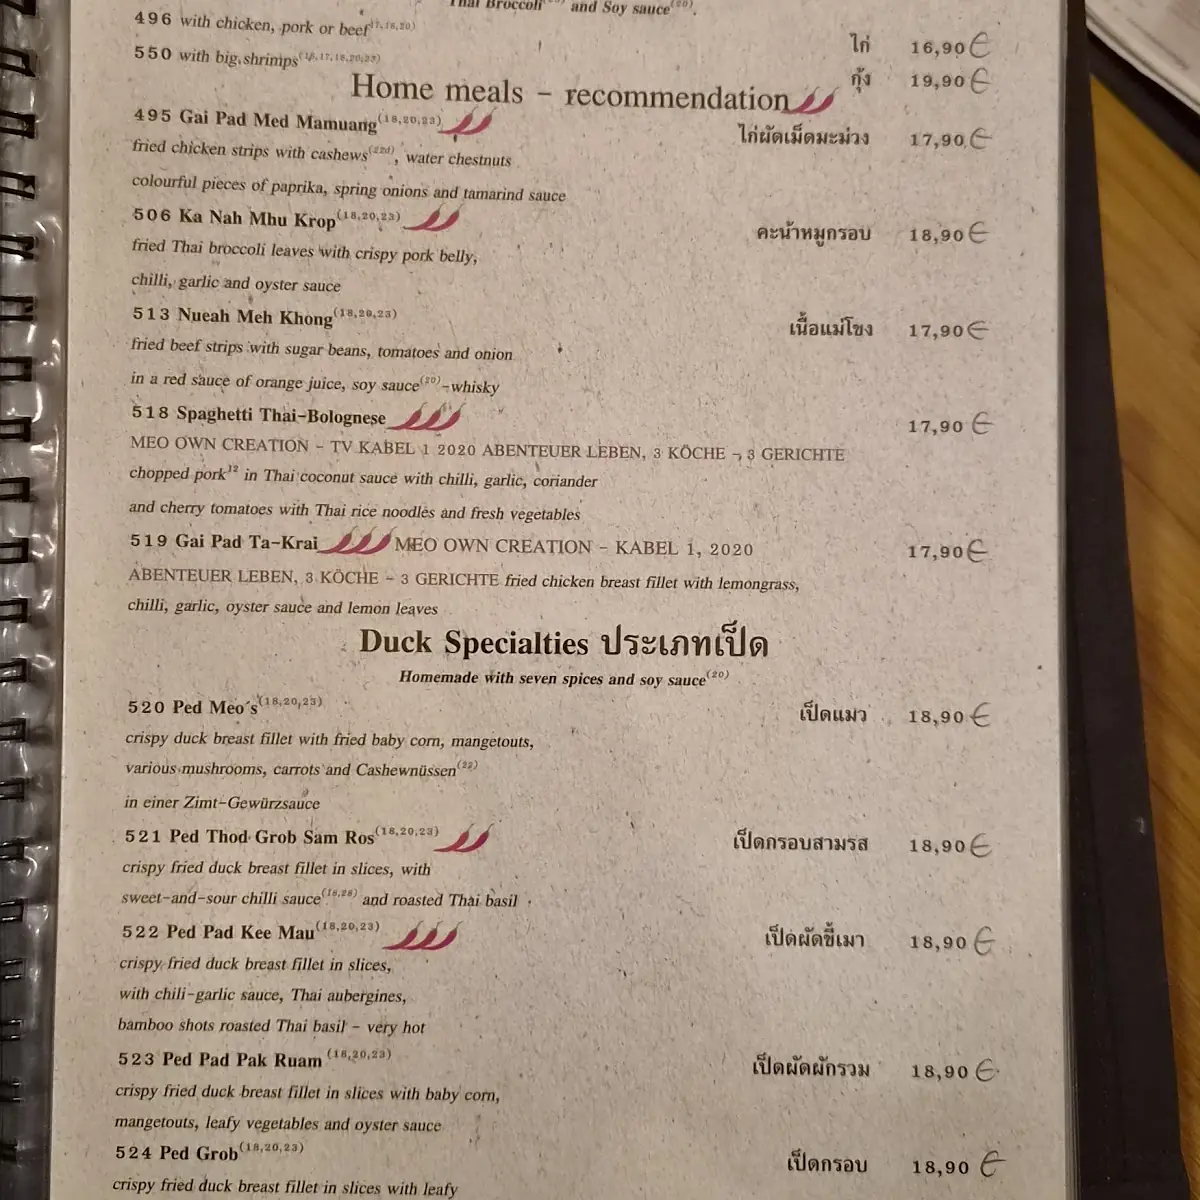 Thai Broccoli and Soy sauce(20).
496 with chicken, pork or beef(17,18,20) ไก่ 16,90€
550 with big shrimps(16,17,18,20,23) กุ้ง 19,90€
Home meals - recommendation
495 Gai Pad Med Mamuang(18,20,23) ไก่ผัดเม็ดมะม่วง 17,90€
fried chicken strips with cashews(22d), water chestnuts
colourful pieces of paprika, spring onions and tamarind sauce
506 Ka Nah Mhu Krop(18,20,23) คะน้าหมูกรอบ 18,90€
fried Thai broccoli leaves with crispy pork belly,
chilli, garlic and oyster sauce
513 Nueah Meh Khong(18,20,23) เนื้อแม่โขง 17,90€
fried beef strips with sugar beans, tomatoes and onion
in a red sauce of orange juice, soy sauce(20)-whisky
518 Spaghetti Thai-Bolognese 17,90€
MEO OWN CREATION - TV KABEL 1 2020 ABENTEUER LEBEN, 3 KÖCHE - 3 GERICHTE
chopped pork12 in Thai coconut sauce with chilli, garlic, coriander
and cherry tomatoes with Thai rice noodles and fresh vegetables
519 Gai Pad Ta-Krai MEO OWN CREATION - KABEL 1, 2020 17,90€
ABENTEUER LEBEN, 3 KÖCHE - 3 GERICHTE fried chicken breast fillet with lemongrass,
chilli, garlic, oyster sauce and lemon leaves
Duck Specialties ประเภทเป็ด
Homemade with seven spices and soy sauce(20)
520 Ped Meo´s(18,20,23) เป็ดแมว 18,90€
crispy duck breast fillet with fried baby corn, mangetouts,
various mushrooms, carrots and Cashewnüssen(22)
in einer Zimt-Gewürzsauce
521 Ped Thod Grob Sam Ros(18,20,23) เป็ดกรอบสามรส 18,90€
crispy fried duck breast fillet in slices, with
sweet-and-sour chilli sauce(18,20) and roasted Thai basil
522 Ped Pad Kee Mau(18,20,23) เป็ดผัดขี้เมา 18,90€
crispy fried duck breast fillet in slices,
with chili-garlic sauce, Thai aubergines,
bamboo shots roasted Thai basil - very hot
523 Ped Pad Pak Ruam (18,20,23) เป็ดผัดผักรวม 18,90€
crispy fried duck breast fillet in slices with baby corn,
mangetouts, leafy vegetables and oyster sauce
524 Ped Grob(18,20,23) เป็ดกรอบ 18,90€
crispy fried duck breast fillet in slices with leafy